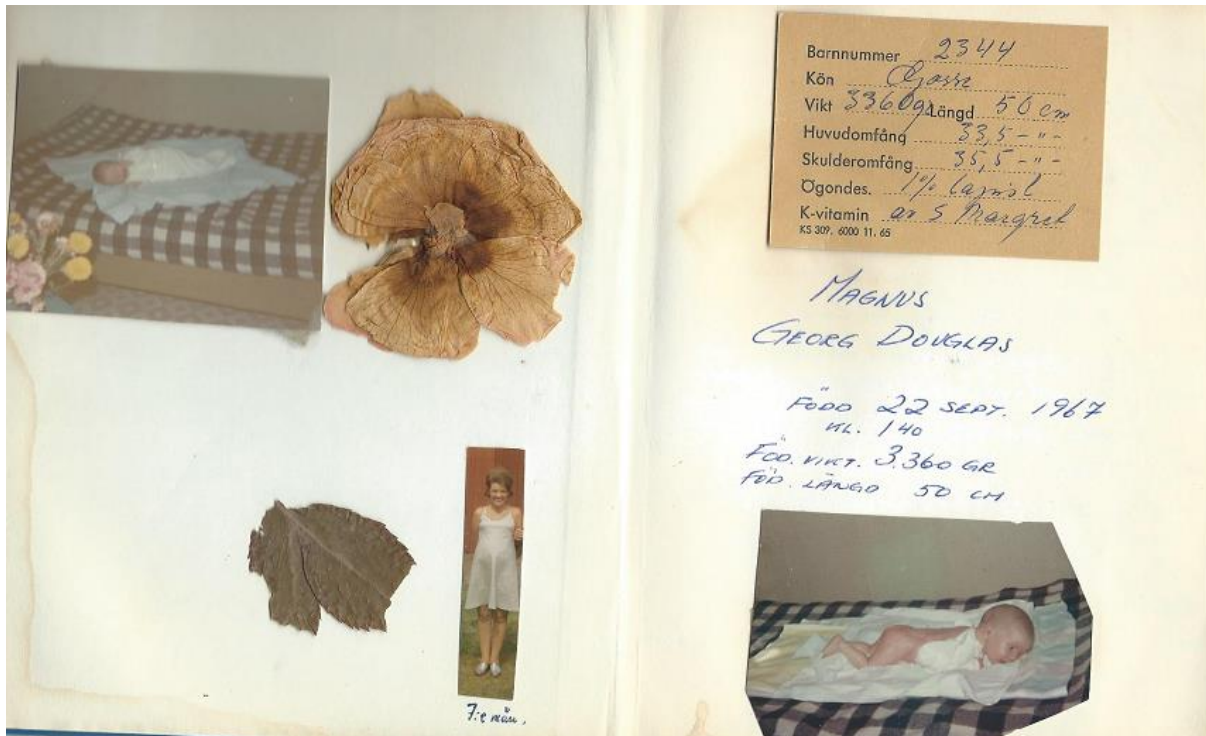 7:e mån.
Barnnummer 2344
Kön Gosse
Vikt 3360gr Längd 50 cm
Huvudomfång 33,5 - " -
Skulderomfång 35,5 - " -
Ögondes. 1% lapisl
K-vitamin av S Margret
KS 309. 6000 11. 65
MAGNUS
GEORG DOUGLAS
FÖDD 22 SEPT. 1967
KL. 140
FÖD. VIKT. 3.360 GR
FÖD. LÄNGD 50 CM